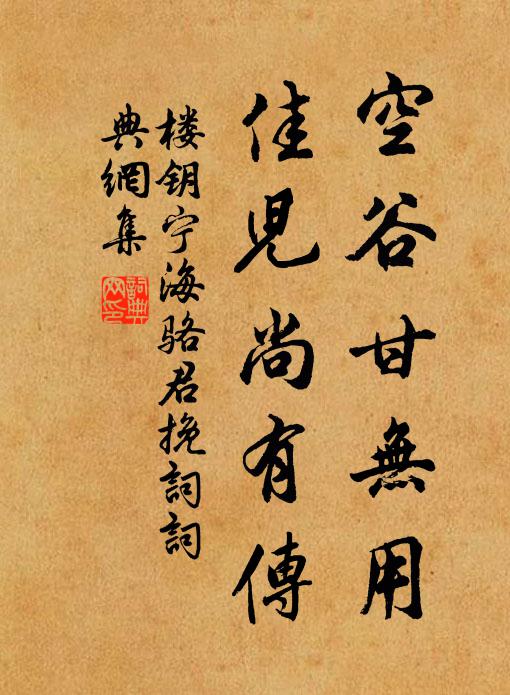 空谷甘無用
佳兒尚有傳
楼钥宁海骆君挽詞詞
典網集
詞典
网印